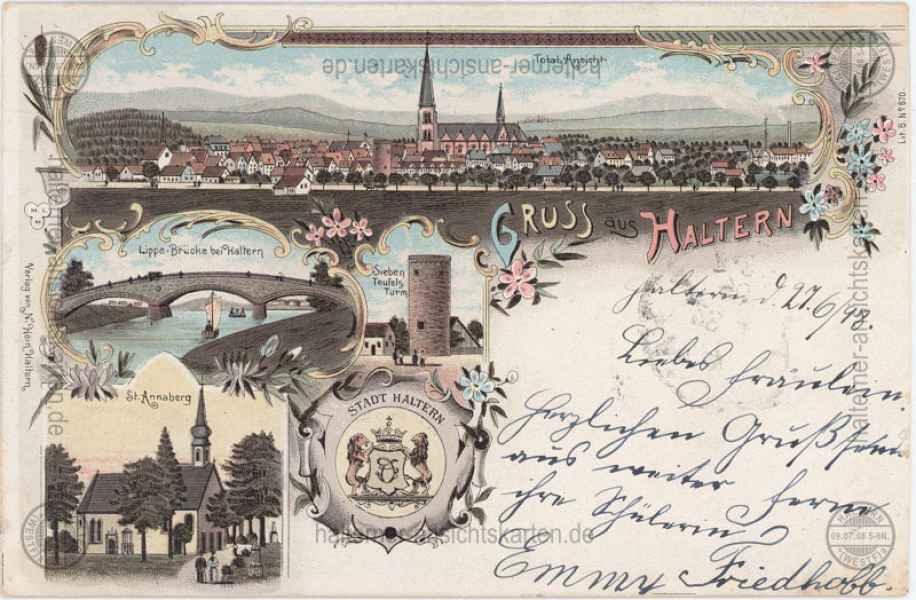 Total-Ansicht
Lit. B. № 670.
GRUSS aus HALTERN
Lippe-Brücke bei Haltern
Sieben
Teufels
Turm
Verlag von N. Horn, Haltern.
St. Annaberg
STADT HALTERN
Haltern d. 27. 6/98.
Liebes Fräulein.
Herzlichen Gruß sendet
aus weiter Ferne
ihre Schülerin
Emmy Friedhoff.
halterner-ansichtskarten.de
halterner-ansichtskarten.de
halterner-ansichtskarten.de
halterner-ansichtskarten.de
09.07.08 5-6N.
(WESTF)